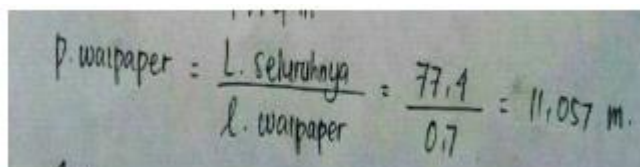 p. walpaper = L. seluruhnya / l. walpaper = 77,4 / 0,7 = 11,057 m.